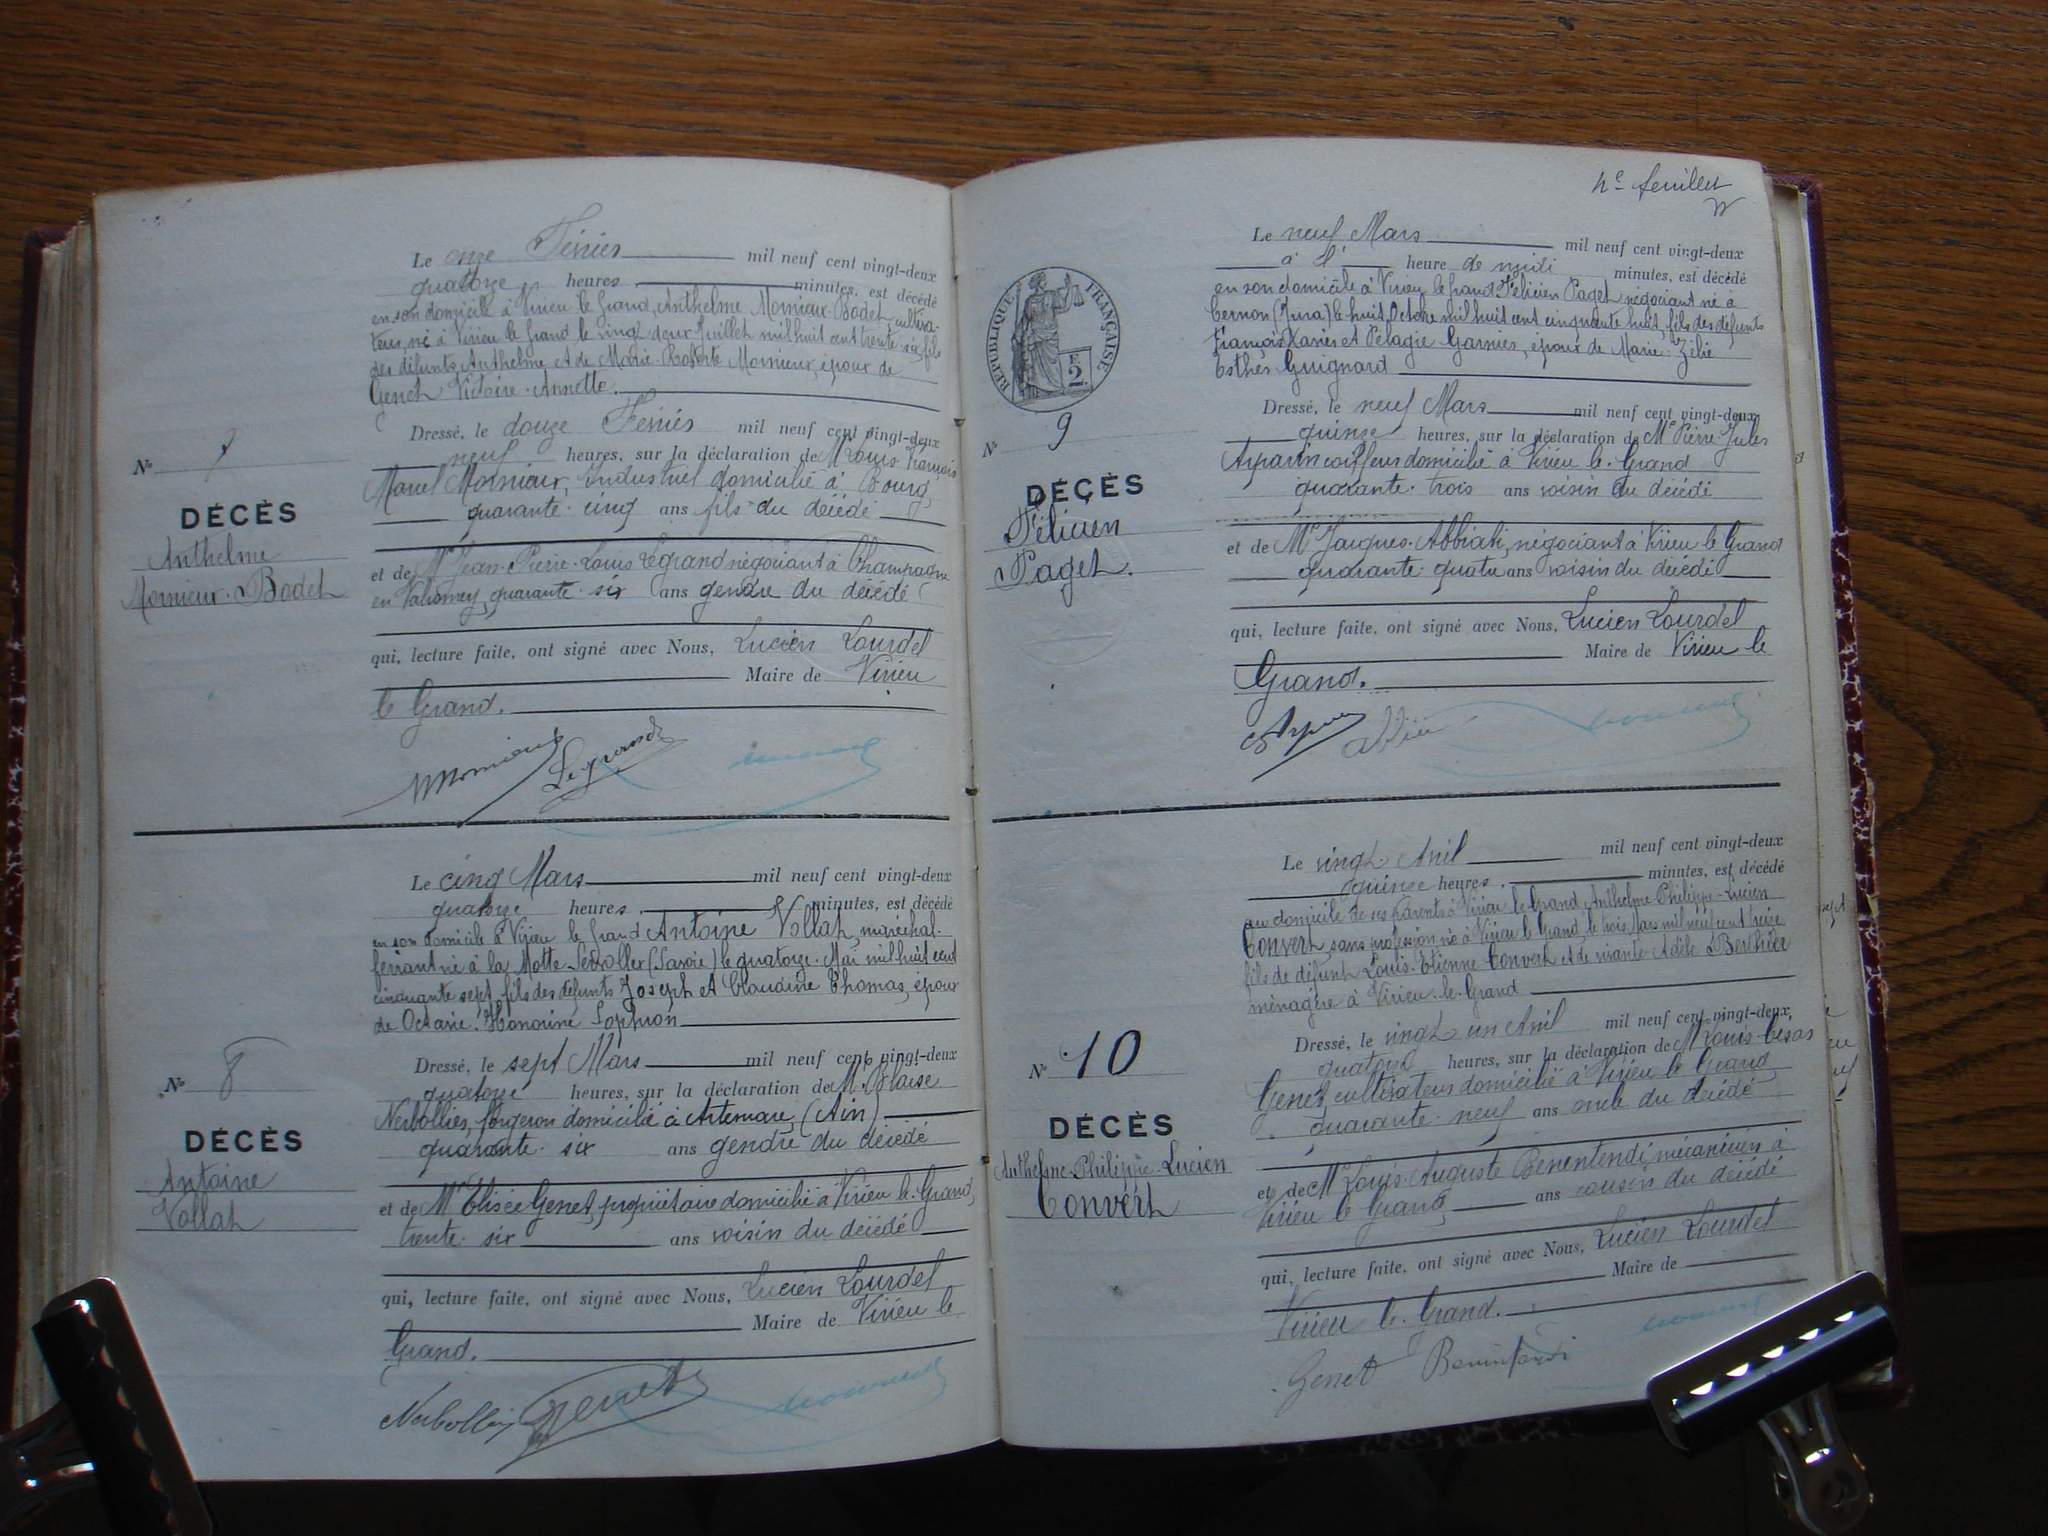 Le onze Février mil neuf cent vingt-deux
quatorze heures minutes, est décédé
en son domicile à Virieu le Grand, Anthelme Mornieux-Bodet, cultiva-
teur, né à Virieu le Grand le vingt deux Juillet mil huit cent trente-six, fils
des défunts Anthelme et de Marie Mornieux, époux de
Genet Victoire-Annette.
Dressé, le douze Février mil neuf cent vingt-deux
neuf heures, sur la déclaration de M Louis-François
Marcel Mornieux, Industriel domicilié à Bourg,
quarante-cinq ans fils du décédé
et de Mr Jean-Pierre-Louis Legrand négociant à Champagne
en Valromey, quarante-six ans gendre du décédé
qui, lecture faite, ont signé avec Nous, Lucien Lourdel
Maire de Virieu
le Grand.
Mornieux Legrand
No 7
DÉCÈS
Anthelme
Mornieux-Bodet
Le cinq Mars mil neuf cent vingt-deux
quatorze heures, minutes, est décédé
en son domicile à Virieu le Grand Antoine Vollat, maréchal-
ferrant né à la Motte-Servollex (Savoie) le quatorze Mai mil huit cent
cinquante sept, fils des défunts Joseph et Claudine Thomas, époux
de Octavie-Honorine
Dressé, le sept Mars mil neuf cent vingt-deux
quatorze heures, sur la déclaration de M. Blaise
Nerbollier, forgeron domicilié à Artemare, (Ain)
quarante-six ans gendre du décédé
et de Mr Elisée Genet, propriétaire domicilié à Virieu le Grand,
trente-six ans voisin du décédé
qui, lecture faite, ont signé avec Nous, Lucien Lourdel
Maire de Virieu le
Grand.
Nerbollier Genet
No 8
DÉCÈS
Antoine
Vollat
4e feuillet
Le neuf Mars mil neuf cent vingt-deux
à l' heure de midi minutes, est décédé
en son domicile à Virieu le Grand Félicien Paget négociant né à
Cernon (Jura) le huit Octobre mil huit cent cinquante huit, fils des défunts
François Xavier et Pélagie Garnier, époux de Marie-Zélie
Esther Guignard
Dressé, le neuf Mars mil neuf cent vingt-deux
quinze heures, sur la déclaration de Mr Pierre-Jules
Arparin coiffeur domicilié à Virieu le Grand
quarante-trois ans voisin du décédé
et de Mr Jacques Abbiati, négociant à Virieu le Grand
quarante-quatre ans voisin du décédé
qui, lecture faite, ont signé avec Nous, Lucien Lourdel
Maire de Virieu le
Grand.
RÉPUBLIQUE FRANÇAISE
E
2
No 9
DÉCÈS
Félicien
Paget.
Le vingt Avril mil neuf cent vingt-deux
quinze heures, minutes, est décédé
au domicile de ses parents à Virieu le Grand, Anthelme-Philippe-Lucien
Convert, sans profession né à Virieu le Grand, le trois Mars mil neuf cent treize
fils de défunt Louis-Etienne Convert et de vivante Adèle Berthier
ménagère à Virieu-le-Grand
Dressé, le vingt un Avril mil neuf cent vingt-deux,
quatorze heures, sur la déclaration de M Louis-César
Genet, cultivateur domicilié à Virieu le Grand
quarante-neuf ans oncle du décédé
et de Mr Louis-Auguste Benentendi mécanicien à
Virieu le Grand, ans cousin du décédé
qui, lecture faite, ont signé avec Nous, Lucien Lourdel
Maire de
Virieu le Grand.
Genet Benintendi
No 10
DÉCÈS
Anthelme-Philippe-Lucien
Convert